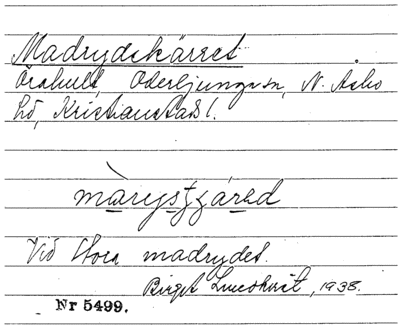 Madrydskärret
Örahult, Oderljunga sn, N. Åsbo
hd, Kristianstads l.
Vid Stora madrydet.
Birgit Lundkvist, 1938.
Nr 5499.